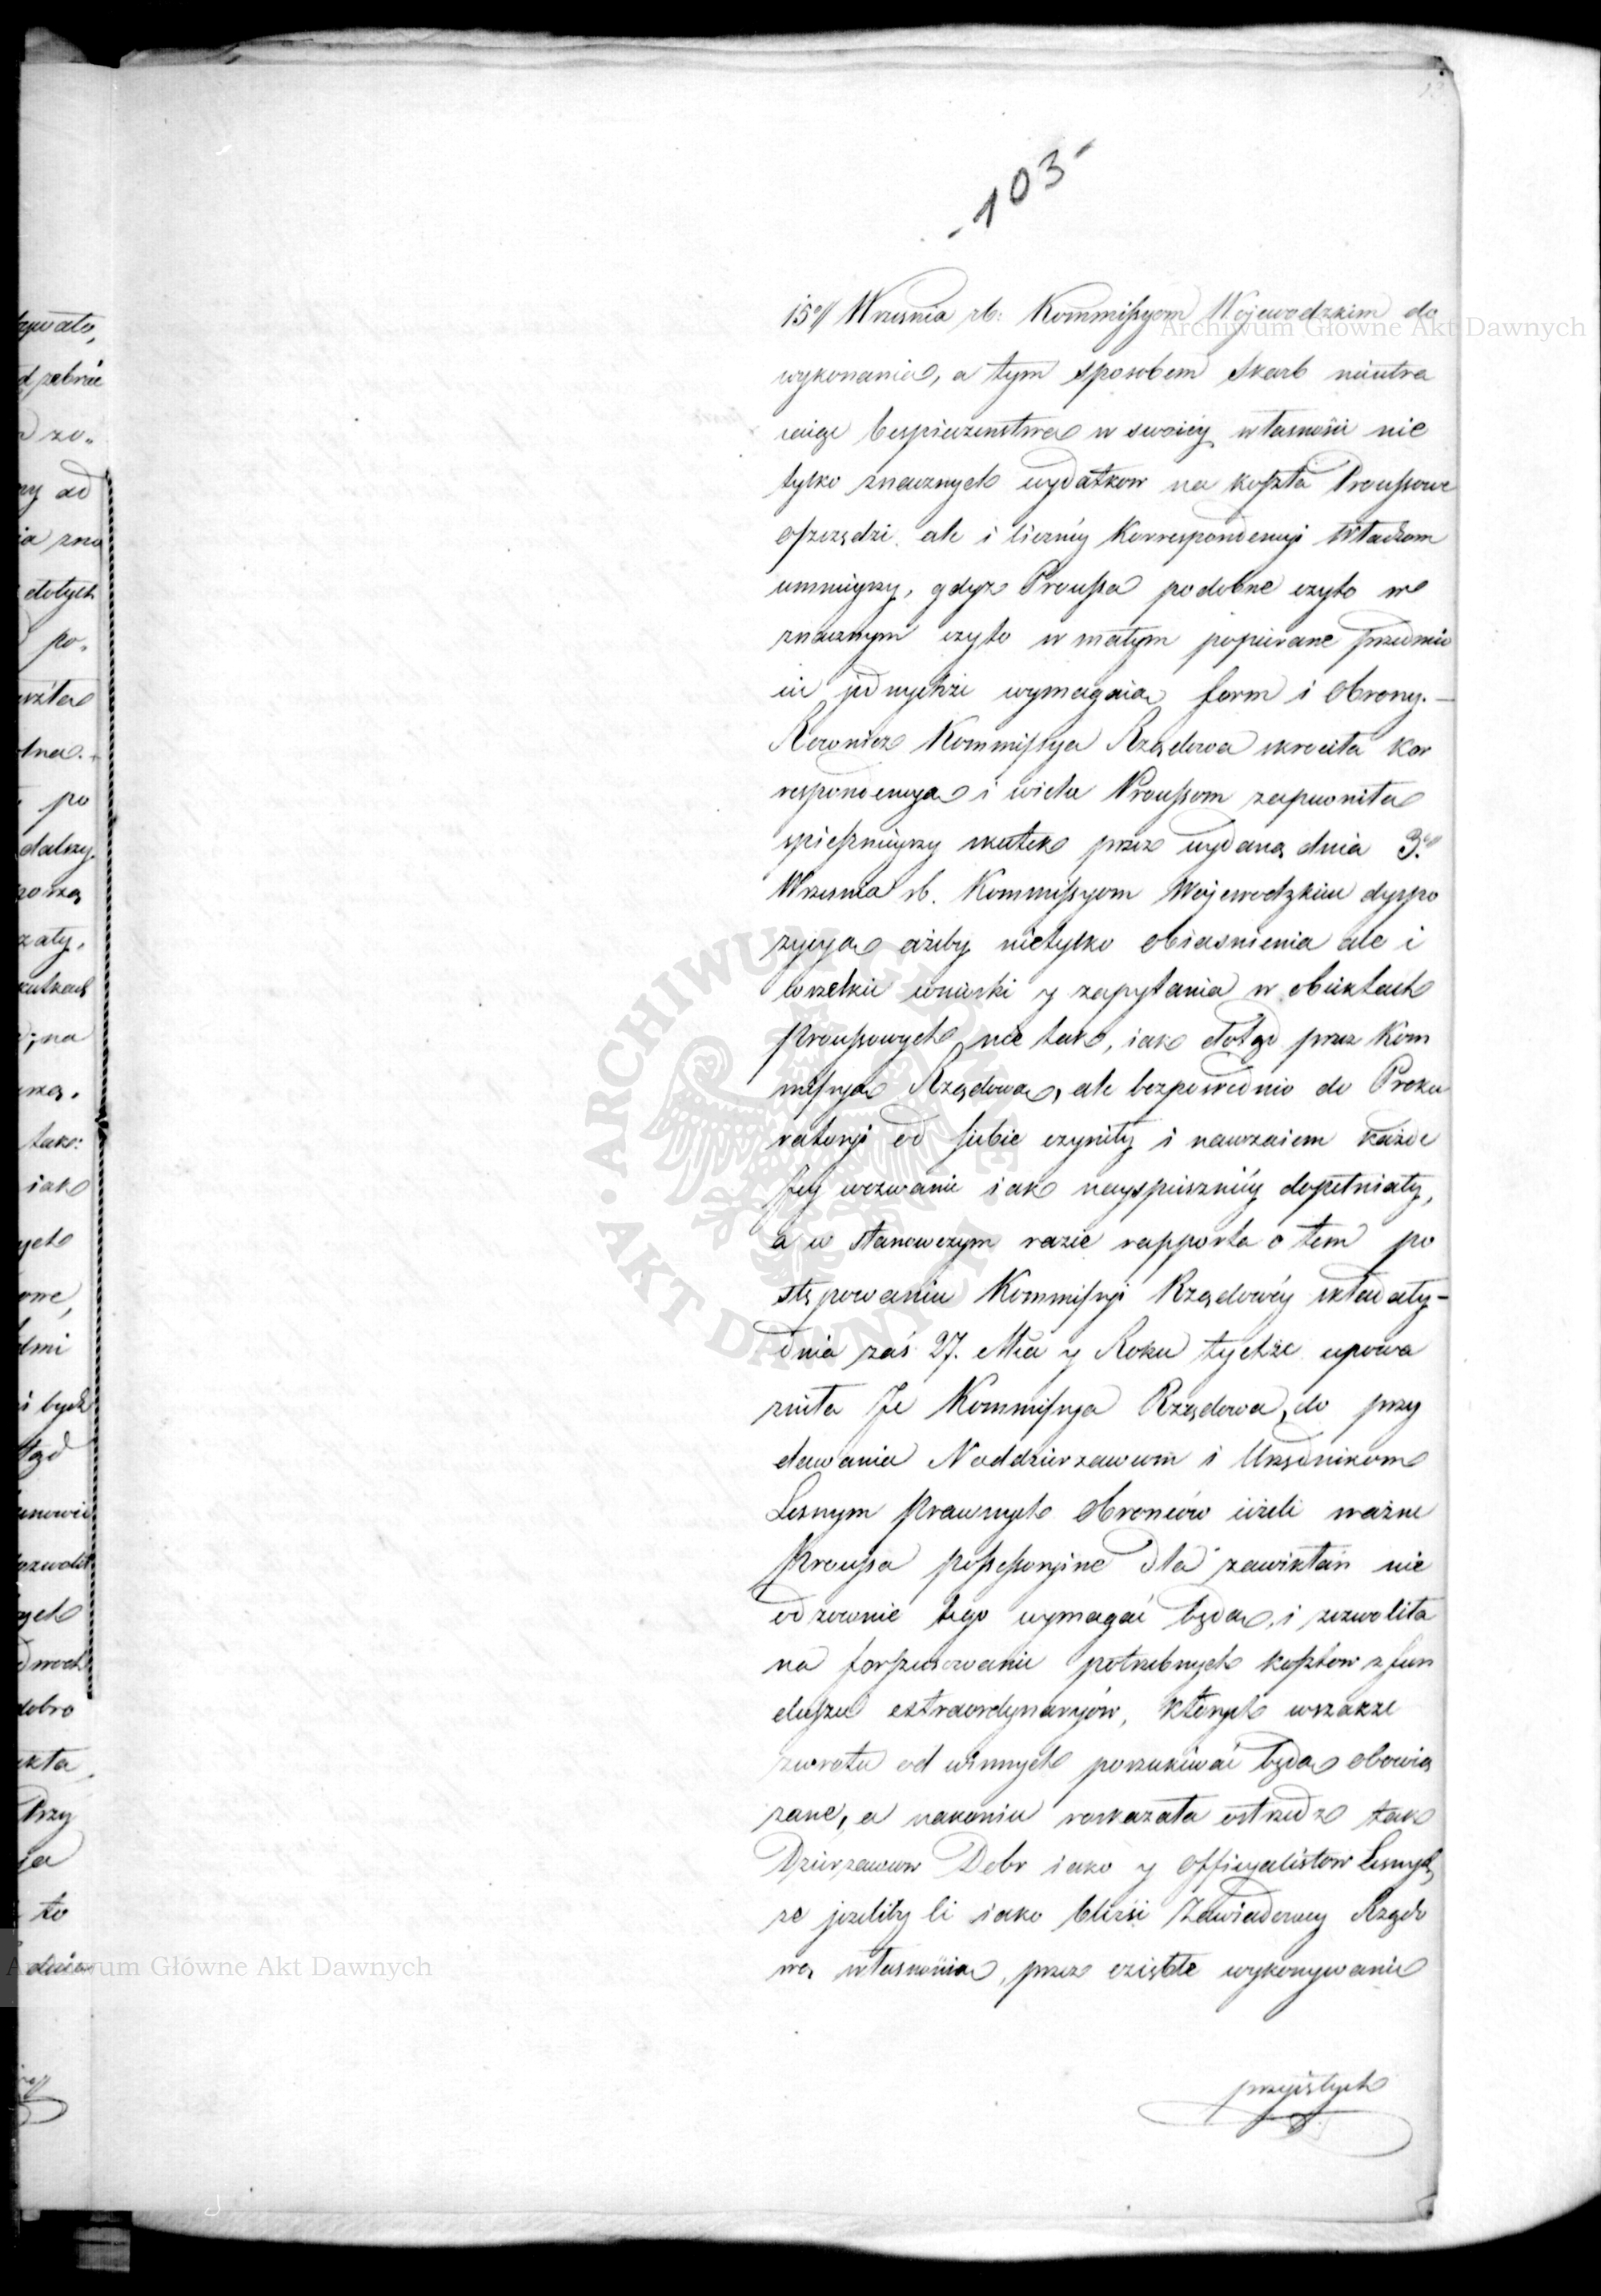 -103-
15º Wrzesnia rb: Kommissyom Wojewodzkim do
wykonania, a tym sposobem Skarb nieutra
caiąc bespieczenstwa w swoiey własności nie
tylko znacznych wydatkow na koszta Processowe
oszczędzi, ale i liczney Korrespondencyi Władzom
umnieyszy, gdyż Processa podobne czyto we
znacznym czyto w małym popierane przedmio
cie jednychże wymagaia form i obrony.—
Rownież Kommissya Rządowa skrociła kor
respondencyą i wielu Processom zapewniła
spieszniejszy skutek przez wydaną dnia 3.º
Wrzesnia rb. Kommissyom Wojewodzkim dyspo
zycyą ażeby nietylko obiasnienia ale i
wszelkie wnioski y zapytania w obiektach
Processowych nie tak, iak dotąd przez Kom
missyą Rządową, ale bezposrednio do Proku
ratoryi od siebie czyniły i nawzaiem każde
Jey wezwanie iak nayspieszniey dopełniały,
a w stanowczym razie rapporta o tem po
stępowaniu Kommissyi Rządowéy składały—
dnia zaś 27. Mca y Roku tychże upowa
żniła Je Kommissya Rządowa, do przy
dawania Naddzierzawcom i Urzędnikom
Lesnym Prawnych Obrońców ieżeli ważne
Processa possessoryjne dla zawikłań nie
odzownie tego wymagać będą, i zezwoliła
na forszusowanie potrzebnych kosztow z fun
duszu extraordynaryów, których wszakże
zwrotu od winnych poszukiwać będą obowią
zane, a nakoniec roskazała ostrzedz tak
Dzierzawcow Dobr iako y Officyalistow Lesnych,
że jeżeliby ci iako bliżsi Zawiadowcy Rządo
wą własnością, przez czięste wykonywanie
przyiętych